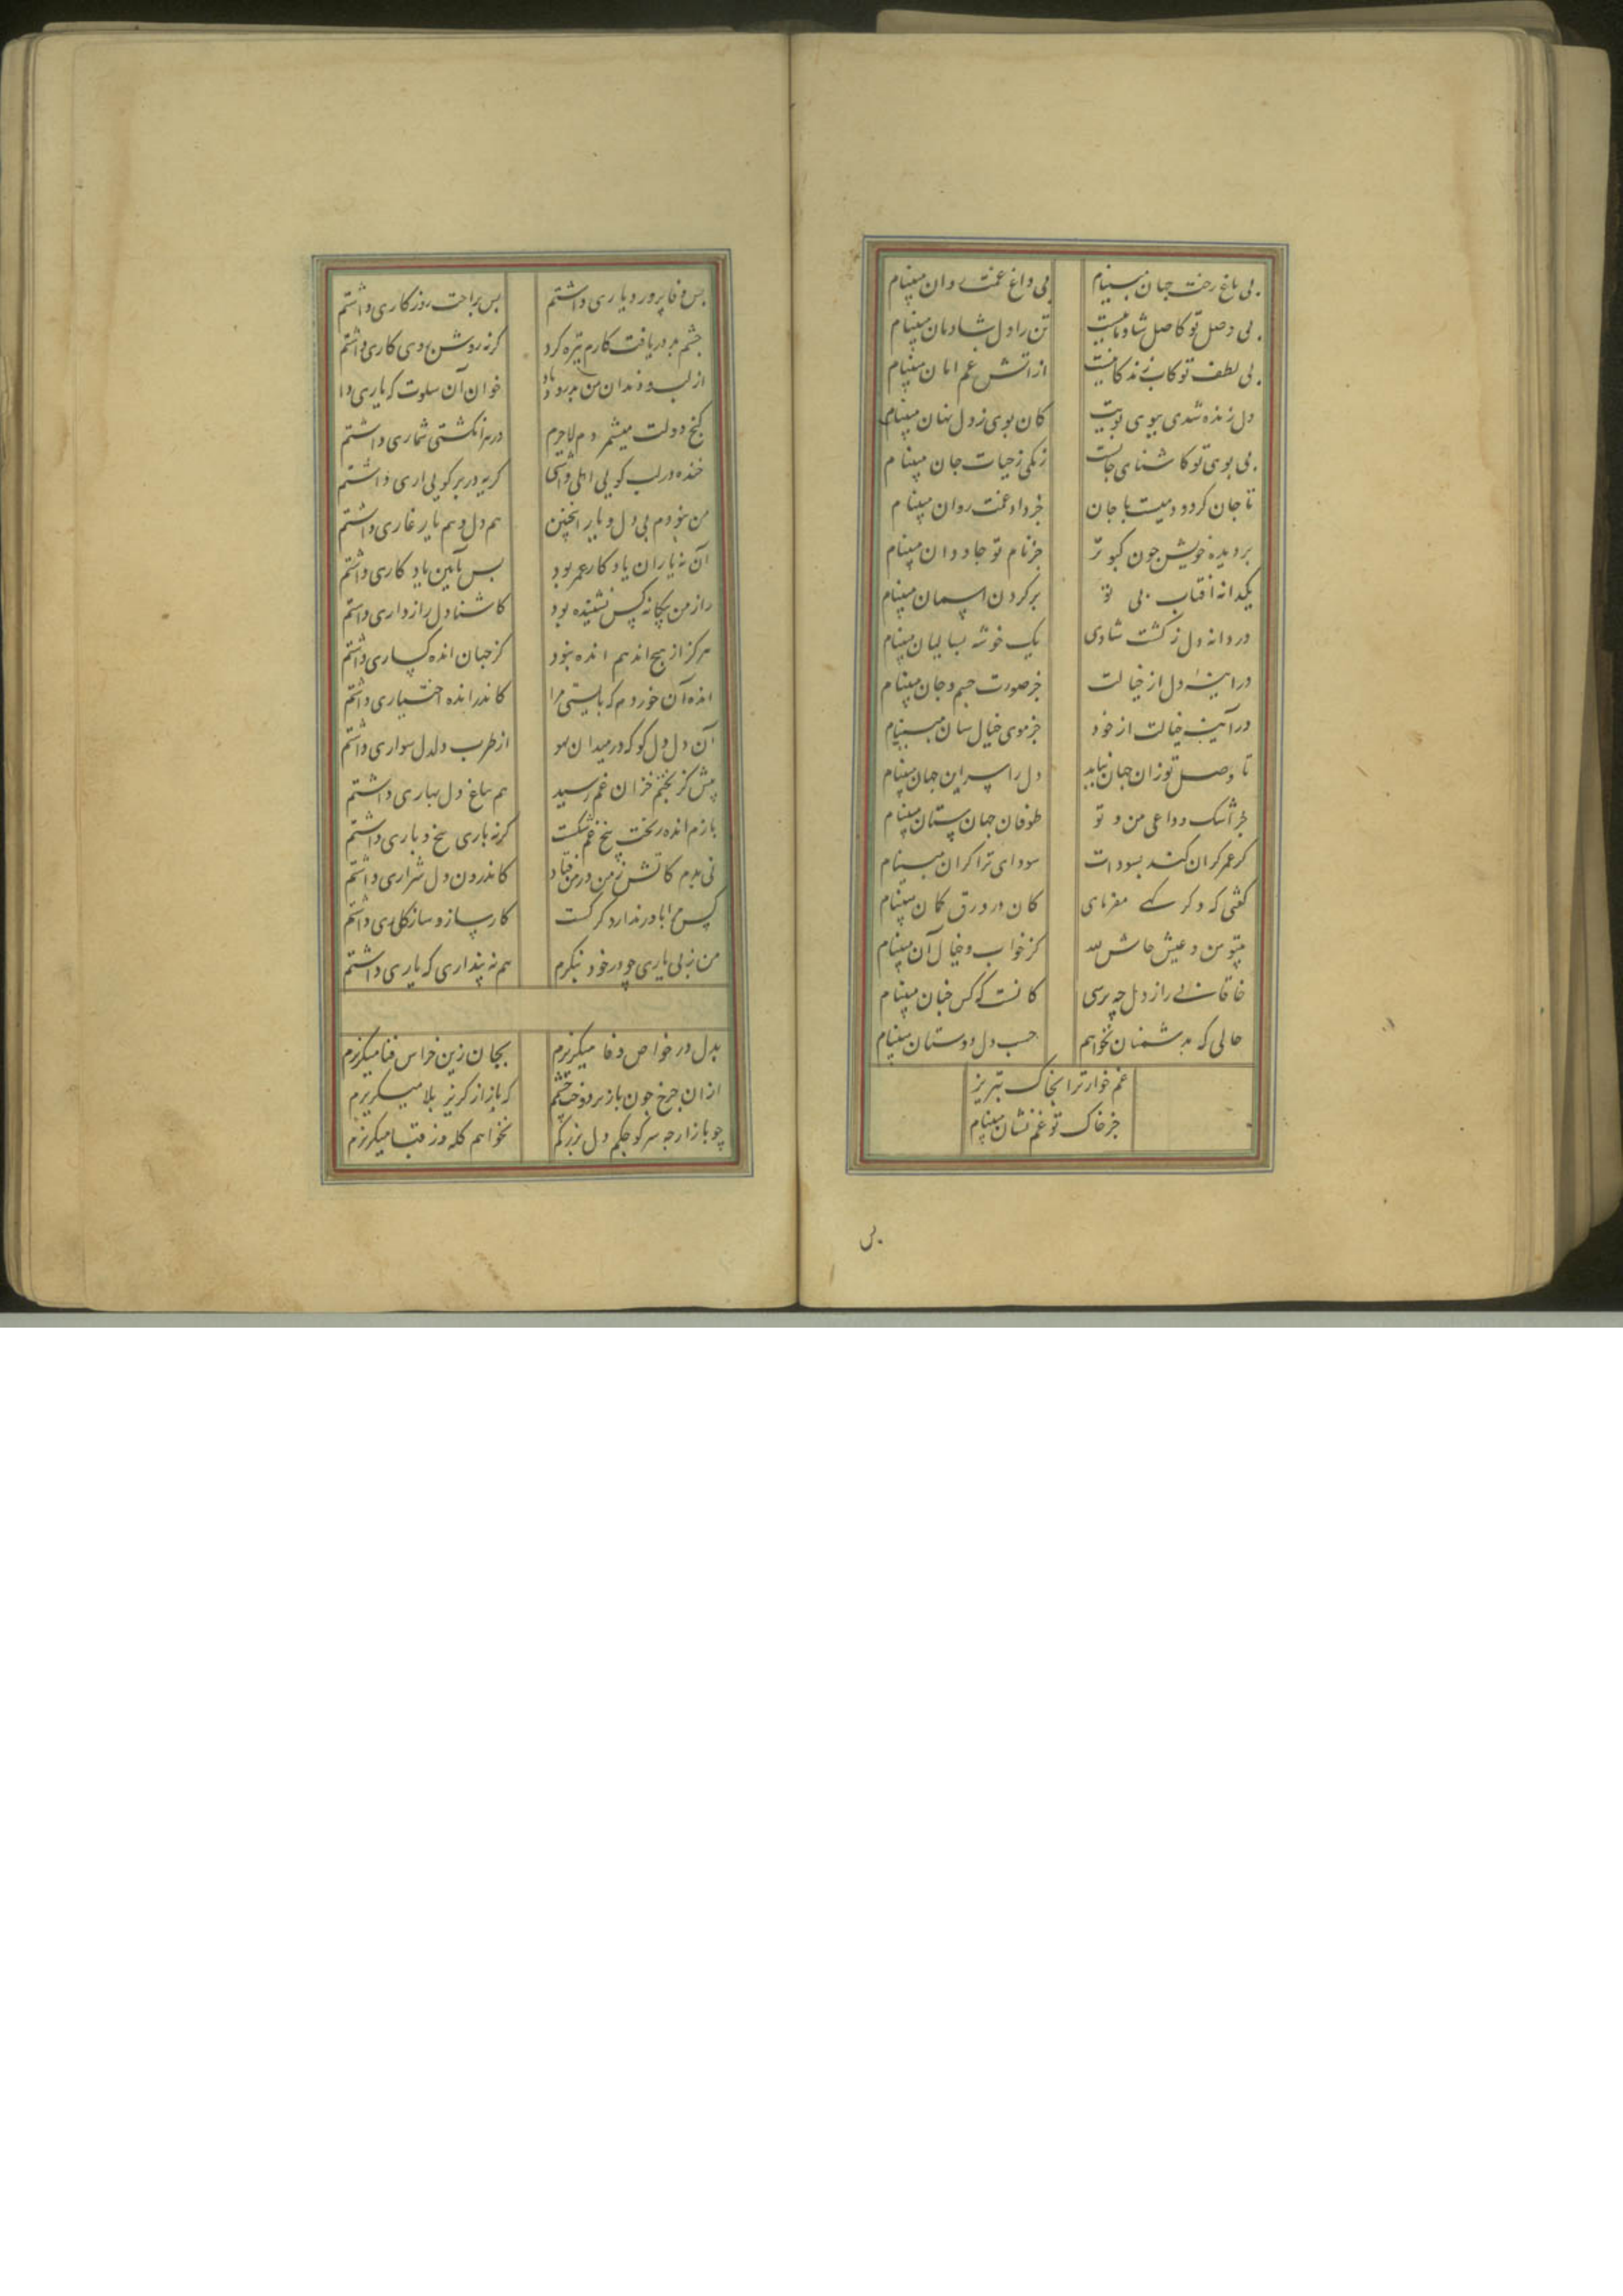 بی باغ رخت جهان مبینام بی داغ غمت روان مبینام
بی وصل تو کاصل شادمانیست تن را دل شادمان مبینام
بی لطف تو کاب زندکانیست از اتش غم امان مبینام
دل زنده شدی ببوی بویت کان بوی ز دل نهان مبینام
بی بوی تو کاشنای جانست رنکی ز حیات جان مبینام
تا جان کرو دمیست با جان جز داد غمت روان مبینام
بر دیده خویش چون کبوتر جز نام تو جاودان مبینام
یکدانه افتاب بی تو بر کردن اسمان مبینام
در دانه دل ز کشت شادی یک خوشه بسالیان مبینام
در اینه دل از خیالت جز صورت جسم و جان مبینام
در آینه خیالت از خود جز موی خیال سان مبینام
تا وصل تو زان جهان نیاید دل را سر این جهان مبینام
جز اشک وداعی من و تو طوفان جهان ستان مبینام
کر عمر کران کنند بسودات سودای ترا کران مبینام
کفتی که دکر کسی مفرمای کان در ورق کمان مبینام
بیتو من و عیش حاش لله کز خواب و خیال آن مبینام
خاقانی را ز دل چه پرسی کانست که کس چنان مبینام
حالی که بدشمنان نخواهم حسب دل دوستان مبینام
غم خوار ترا بخاک تبریز
جز خاک تو غم نشان مبینام
بس
بس وفا پرورد یاری داشتم بس براحت روزکاری داشتم
چشم بد دریافت کارم تیره کرد کرنه روشن روی کاری داشتم
از لب و دندان من بدرود باد خوان آن سلوت که یاری دا
کنج دولت میشمردم لاجرم در هر انکشتی شماری داشتم
خنده در لب کویی اهلی داشتی کریه در بر کویی اری داشتم
من نبودم بی دل و یار اینچنین هم دل و هم یار غاری داشتم
آن نه یاران یادکار عمر بود بس بآیین یادکاری داشتم
راز من بیکانه کس نشنیده بود کاشنا دل رازداری داشتم
هرکز از هیچ اندهم انده نبود کز جهان انده کساری داشتم
انده آن خوردم که بایستی مرا کاندر انده اختیاری داشتم
آن دل دل کو که در میدان لهو از طرب دلدل سواری داشتم
پیش کز بختم خزان غم رسید هم بباغ دل بهاری داشتم
بازم انده ریخت بیخ غم شکست کرنه باری بیخ و باری داشتم
نی بدم کاتش ز من در من فتاد کاندرون دل شراری داشتم
کس مرا باور ندارد کز نخست کار ساز و ساز کاری داشتم
من ز بی یاری چو در خود بنکرم هم نه پنداری که یاری داشتم
بدل در خواص وفا میکریزم بجان زین خراس فنا میکریزم
از ان چرخ چون باز بردوخت چشمم که باز از کریز بلا میکریزم
چو باز ارچه سر کوچکم دل بزرکم نخواهم کله وز قبا میکریزم